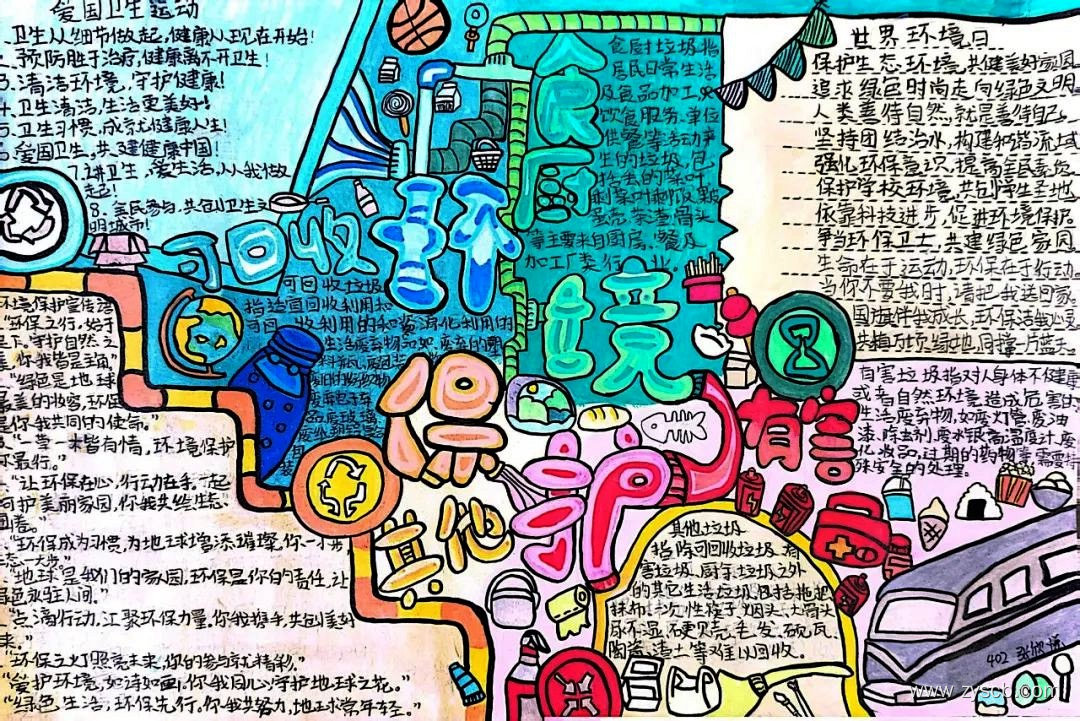 爱国卫生运动
卫生从细节做起,健康从现在开始!
预防胜于治疗,健康离不开卫生!
3.清洁环境,守护健康!
4.卫生清洁,生活更美好!
5.卫生习惯,成就健康人生!
爱国卫生,共建健康中国!
7.讲卫生,爱生活,从我做
起!
8.全民参与,共创卫生文
明城市!
可回收
环
境
保
护
可回收垃圾
指适宜回收利用和
可回收利用的和资源化利用的
生活废弃物品如:废弃的塑
食厨
垃
食厨垃圾指
居民日常生活
及食品加工
饮食服务、单位
供餐等活动产
生的垃圾,包
等主要来自厨房、餐
加工厂类行业。
世界环境日
保护生态环境,共健美好家园
追求绿色时尚走向绿色文明
人类善待自然,就是善待自己
坚持团结治水,构建和谐流域
强化环保意识,提高全民素质
保护学校环境,共创学生圣地
依靠科技进步,促进环境保护
争当环保卫士,共建绿色家园
生命在于运动,环保在于行动
当你不要我时,请把我送回家
国旗伴我成长,环保洁我心灵
共植万顷绿地,同撑一片蓝天
有害
有害垃圾指对人身体不健康
或者自然环境造成危害的
生活废弃物,如废灯管、废油
漆、除虫剂、废水银温度计、废
化妆品,过期的药物等,需要特
殊安全的处理。
环境保护宣传语
“环保之行,始于
足下,守护自然之
美,你我皆是主角”
“绿色是地球
最美的妆容,环保
是你我共同的使命。”
一草一木皆有情,环境保护
你最行。”
“让环保在心,行动在手,一起
呵护美丽家园,你我共绘生态
画卷。”
“环保成为习惯,为地球增添璀璨,你一小步,
“地球是我们的家园,环保是你的责任,让
绿色永驻人间。”
点滴行动,汇聚环保力量,你我携手,共创美好
未来。”
“环保之灯照亮未来,你的参与就精彩。”
“爱护环境,如诗如画,你我同心,守护地球之花。”
“绿色生活,环保先行,你我共努力,地球常年轻。”
其他
其他垃圾
指除可回收垃圾、有
害垃圾、厨余垃圾之外
的其它生活垃圾,包括拖把
抹布、一次性筷子、烟头、
尿不湿、硬贝壳、毛发、砖瓦
陶瓷、渣土等难以回收。
402
www.zyscb.com